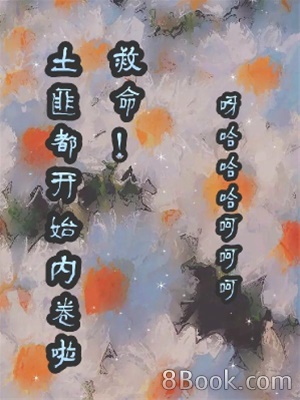 救命！
土匪都开始内卷啦
呀哈哈哈呵呵呵
8Book.com